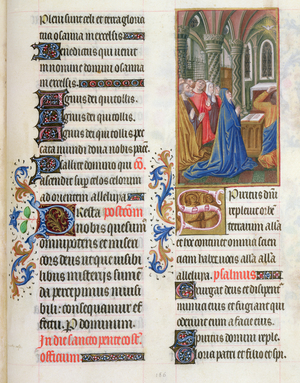 Pleni sunt celi et terra gloria
tua osanna in excelsis.
Benedictus qui uenit
in nomine domini osanna
in excelsis.
Agnus dei qui tollis.
Agnus dei qui tollis.
Agnus dei qui tollis pec
cata mundi dona nobis pacem
Psallite domino qui
ascendit super celos celorum
ad orientem alleluya.
Presta postcom
nobis quesumus
omnipotens et miseri
cors deus ut que uisibi
libus misteriis sumen
da percepimus inuisi
bili consequamur ef
fectu. P dominum.
In die sancto penthecostes
officium
Spiritus domini
repleuit orbem
terrarum alla
et hoc continet omnia scien
ciam habet uocis alla alla
alleluya. psalmus
Exurgat deus et dissipentur
inimici eius et fugiant qui
oderunt eum a facie eius.
Spiritus domini reple.
Gloria patri et filio et spi.